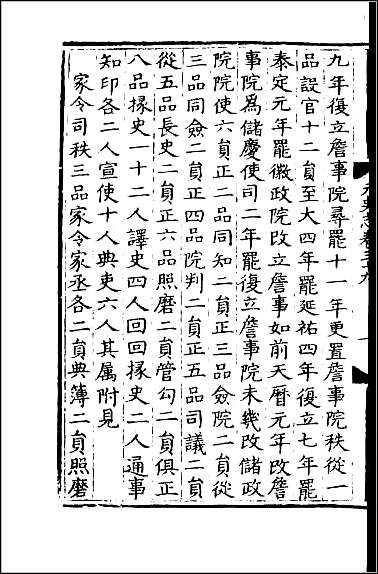 九年復立詹事院尋罷十一年更置詹事院秩從一
品設官十二貟至大四年罷延祐四年復立七年罷
泰定元年罷徽政院改立詹事如前天曆元年改詹
事院爲儲慶使司二年罷復立詹事院未幾改儲政
院院使六貟正二品同知二貟正三品僉院二貟從
三品同僉二貟正四品院判二貟正五品司議二貟
從五品長史二貟正六品照磨二貟管勾二貟俱正
八品掾史一十二人譯史四人回回掾史二人通事
知印各二人宣使十人典吏六人其属附見
家令司秩三品家令家丞各二貟典簿二貟照磨